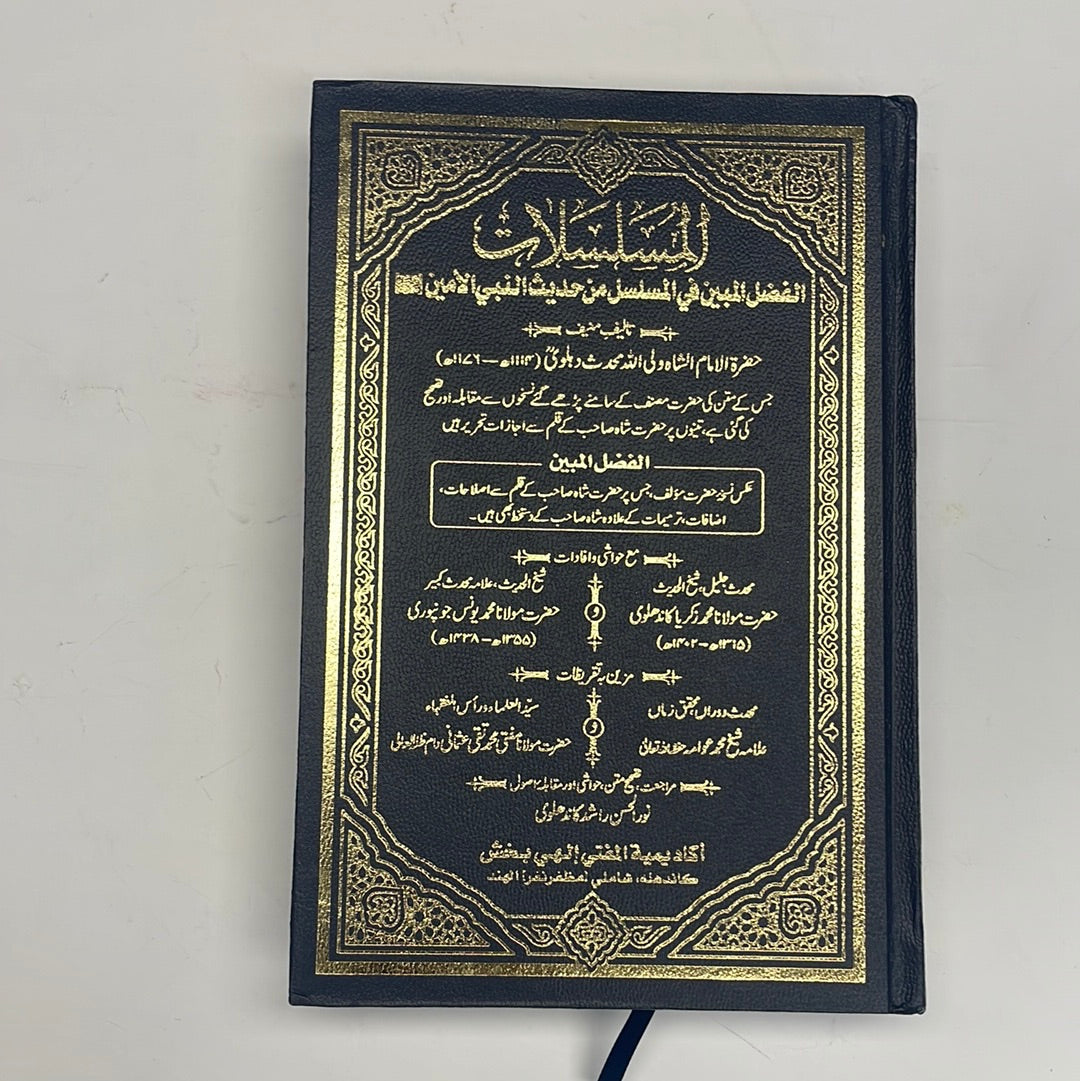 المسلسلات
الفضل المبين في المسلسل من حديث النبي الأمين ﷺ
تالیف منیف
حضرۃ الامام الشاہ ولی اللہ محدث دہلویؒ (۱۱۱۴ھ — ۱۱۷۶ھ)
جس کے متن کی حضرت مصنف کے سامنے پڑھے گئے نسخوں سے مقابلہ اور تصحیح
کی گئی ہے، تینوں پر حضرت شاہ صاحب کے قلم سے اجازات تحریر ہیں
الفضل المبین
عکس نسخۂ حضرت مؤلف، جس پر حضرت شاہ صاحب کے قلم سے اصلاحات،
اضافات، ترمیمات کے علاوہ شاہ صاحب کے دستخط بھی ہیں۔
مع حواشی وافادات
محدث جلیل، شیخ الحدیث
حضرت مولانا محمد زکریا کاندھلوی
(۱۳۱۵ھ — ۱۴۰۲ھ)
و
شیخ الحدیث، علامہ محدث کبیر
حضرت مولانا محمد یونس جونپوری
(۱۳۵۵ھ — ۱۴۳۸ھ)
مزین بہ تقریظات
محدث دوراں، محقق زماں
علامہ شیخ محمد عوامہ حفظہ اللہ تعالیٰ
و
سیّد العلماء ورأس الفقہاء
حضرت مولانا مفتی محمد تقی عثمانی دام ظلہ العالی
مراجعت، تصحیح متن، حواشی اور مقابلہ اصول
نور الحسن راشد کاندھلوی
أكاديمية المفتي إلهي بخش
كاندهله، شاملي (مظفر نغر) الهند